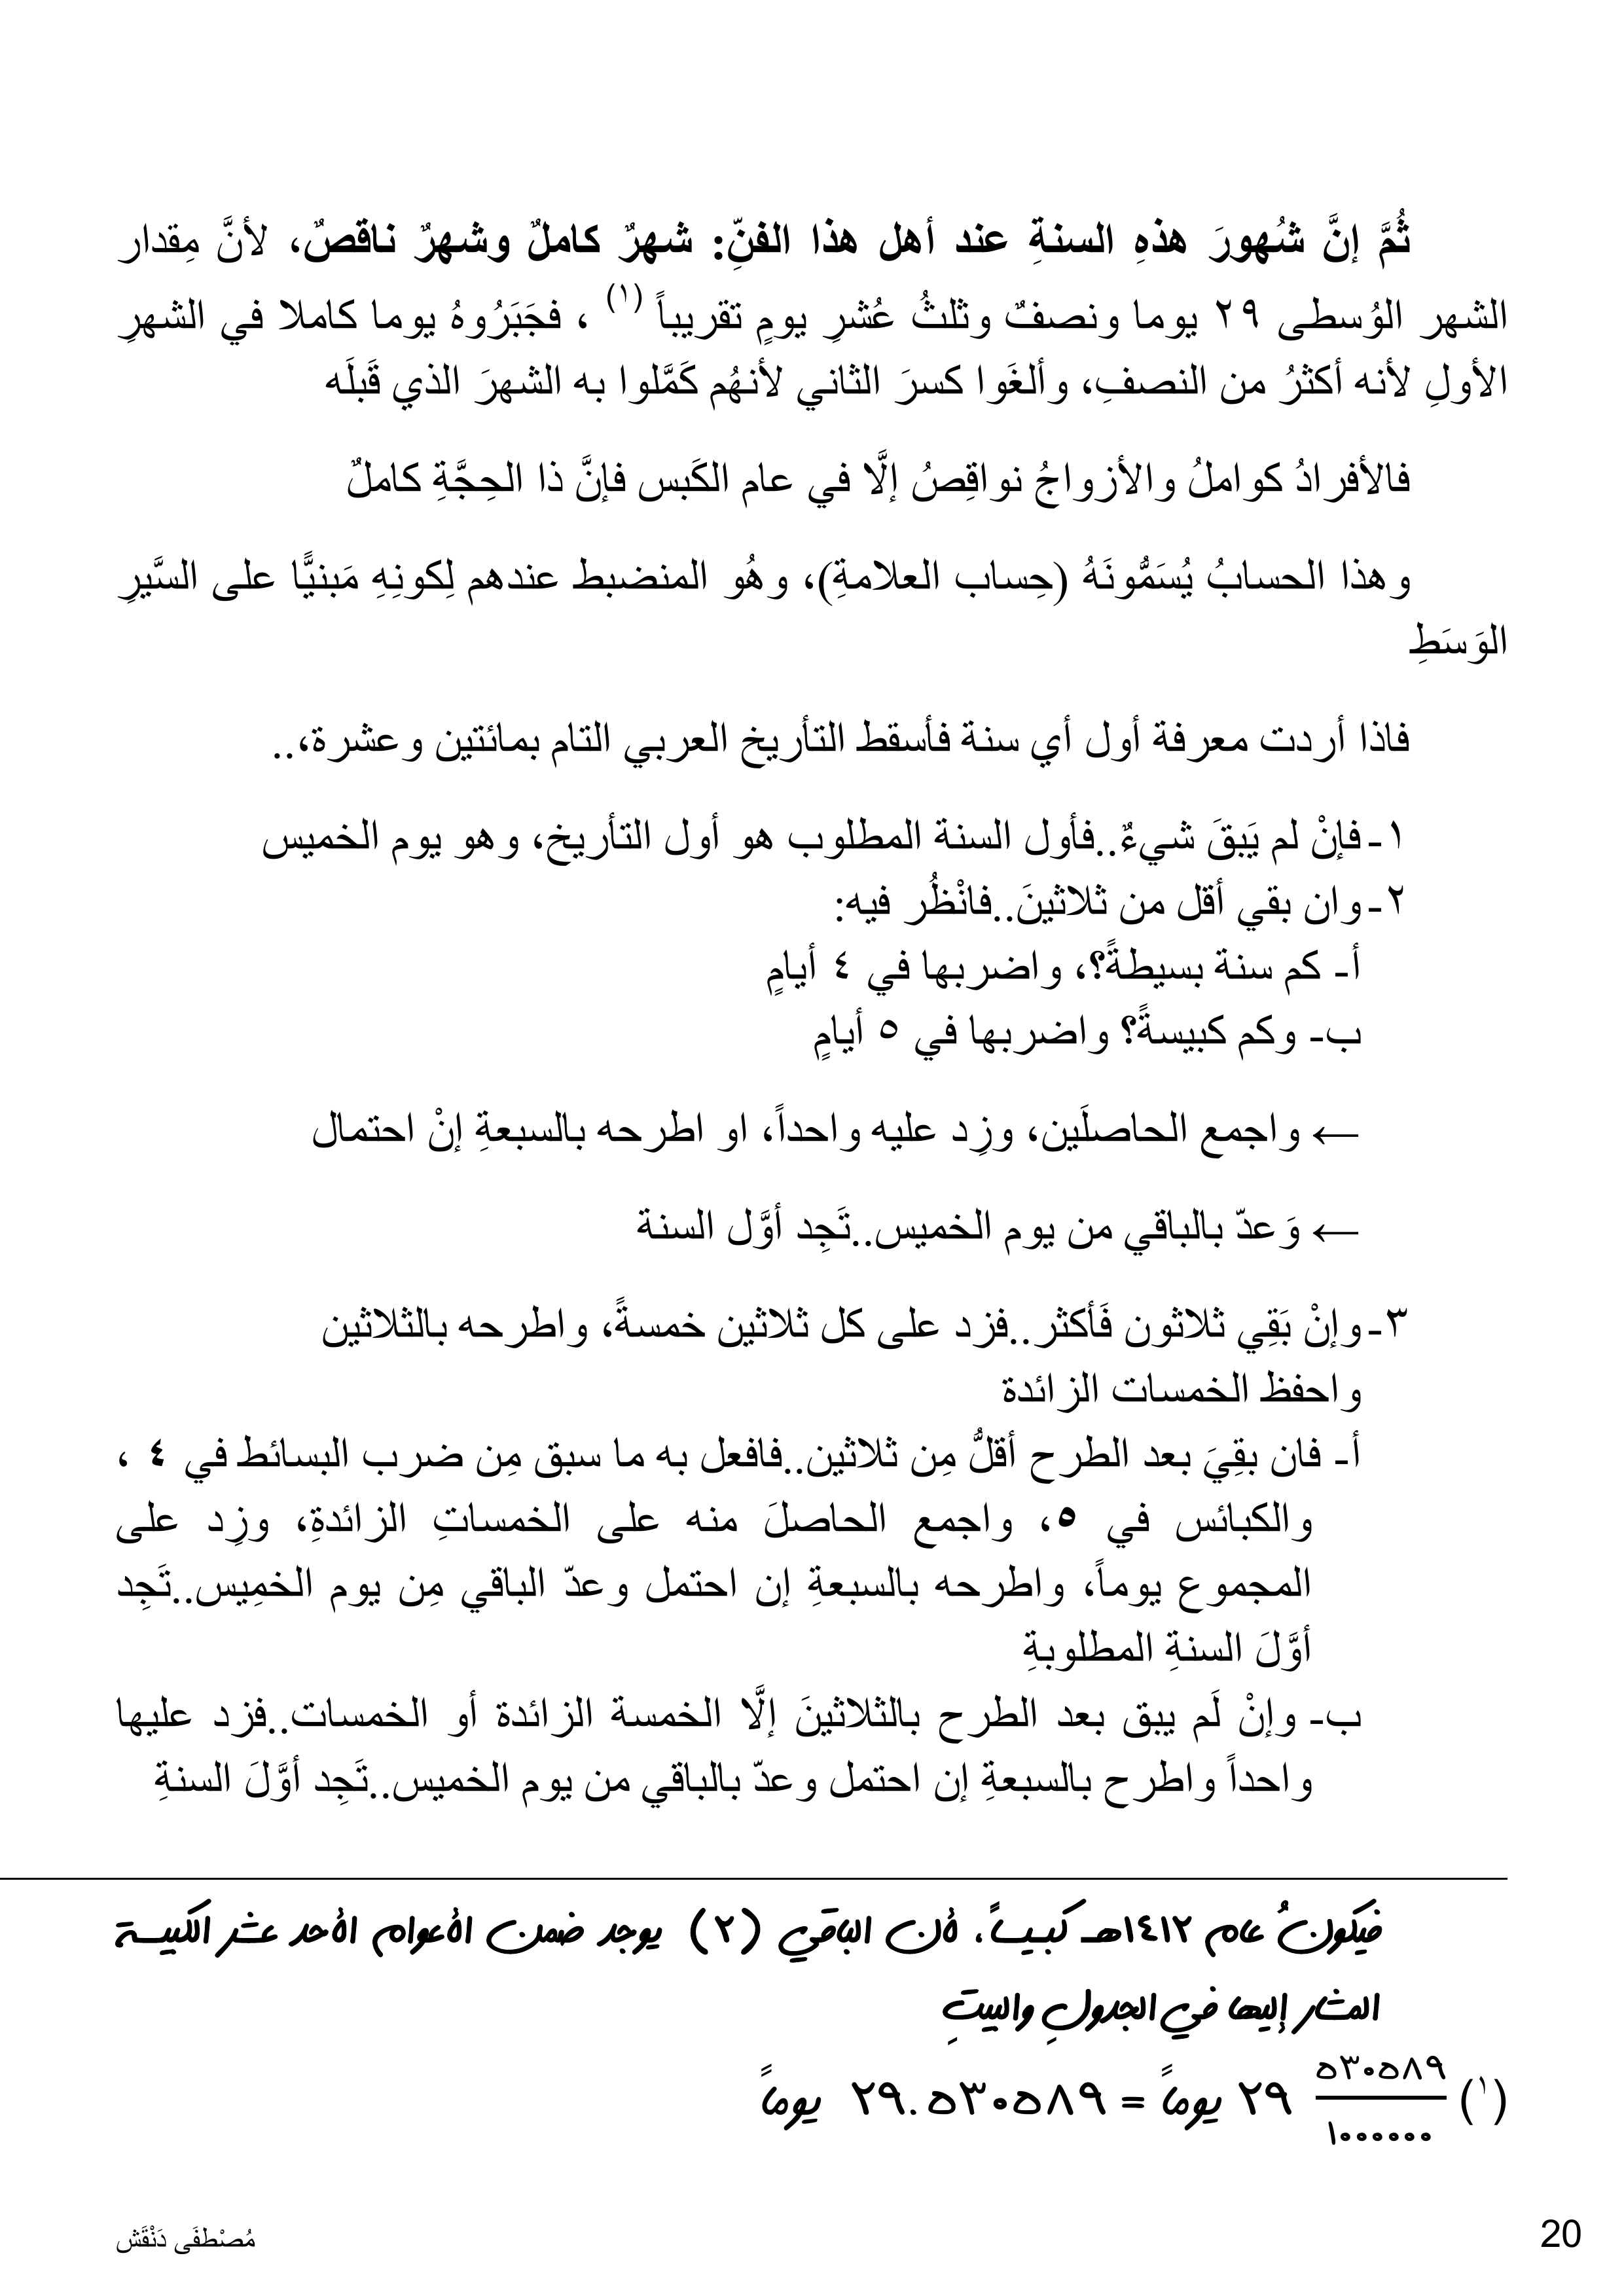 ثُمَّ إنَّ شُهورَ هذهِ السنةِ عند أهل هذا الفنِّ: شهرٌ كاملٌ وشهرٌ ناقصٌ، لأنَّ مِقدار
الشهر الوُسطى ٢٩ يوما ونصفٌ وثلثُ عُشرِ يومٍ تقريباً (١) ، فجَبَرُوهُ يوما كاملا في الشهرِ
الأولِ لأنه أكثرُ من النصفِ، وألغَوا كسرَ الثاني لأنهُم كَمَّلوا به الشهرَ الذي قَبلَه
فالأفرادُ كواملُ والأزواجُ نواقِصُ إلَّا في عام الكَبس فإنَّ ذا الحِجَّةِ كاملٌ
وهذا الحسابُ يُسَمُّونَهُ (حِساب العلامةِ)، وهُو المنضبط عندهم لِكونِهِ مَبنيًّا على السَّيرِ
الوَسَطِ
فاذا أردت معرفة أول أي سنة فأسقط التأريخ العربي التام بمائتين وعشرة،..
١- فإنْ لم يَبقَ شيءٌ..فأول السنة المطلوب هو أول التأريخ، وهو يوم الخميس
٢- وان بقي أقل من ثلاثينَ..فانْظُر فيه:
أ- كم سنة بسيطةً؟، واضربها في ٤ أيامٍ
ب- وكم كبيسةً؟ واضربها في ٥ أيامٍ
← واجمع الحاصلَين، وزِد عليه واحداً، او اطرحه بالسبعةِ إنْ احتمال
← وَعدّ بالباقي من يوم الخميس..تَجِد أوَّل السنة
٣- وإنْ بَقِي ثلاثون فَأكثر..فزد على كل ثلاثين خمسةً، واطرحه بالثلاثين
واحفظ الخمسات الزائدة
أ- فان بقِيَ بعد الطرح أقلُّ مِن ثلاثين..فافعل به ما سبق مِن ضرب البسائط في ٤ ،
والكبائس في ٥، واجمع الحاصلَ منه على الخمساتِ الزائدةِ، وزِد على
المجموع يوماً، واطرحه بالسبعةِ إن احتمل وعدّ الباقي مِن يوم الخمِيس..تَجِد
أوَّلَ السنةِ المطلوبةِ
ب- وإنْ لَم يبق بعد الطرح بالثلاثينَ إلَّا الخمسة الزائدة أو الخمسات..فزد عليها
واحداً واطرح بالسبعةِ إن احتمل وعدّ بالباقي من يوم الخميس..تَجِد أوَّلَ السنةِ
فيكونُ عام ١٤١٢هـ كبيساً، لأن الباقي (٢) يوجد ضمن الأعوام الأحد عشر الكبيسة
المشار إليها في الجدولِ والبيتِ
(١) ٥٣٠٥٨٩/١٠٠٠٠٠٠ ٢٩ يوماً = ٢٩.٥٣٠٥٨٩ يوماً
مُصْطفَى دَنْقَش
20